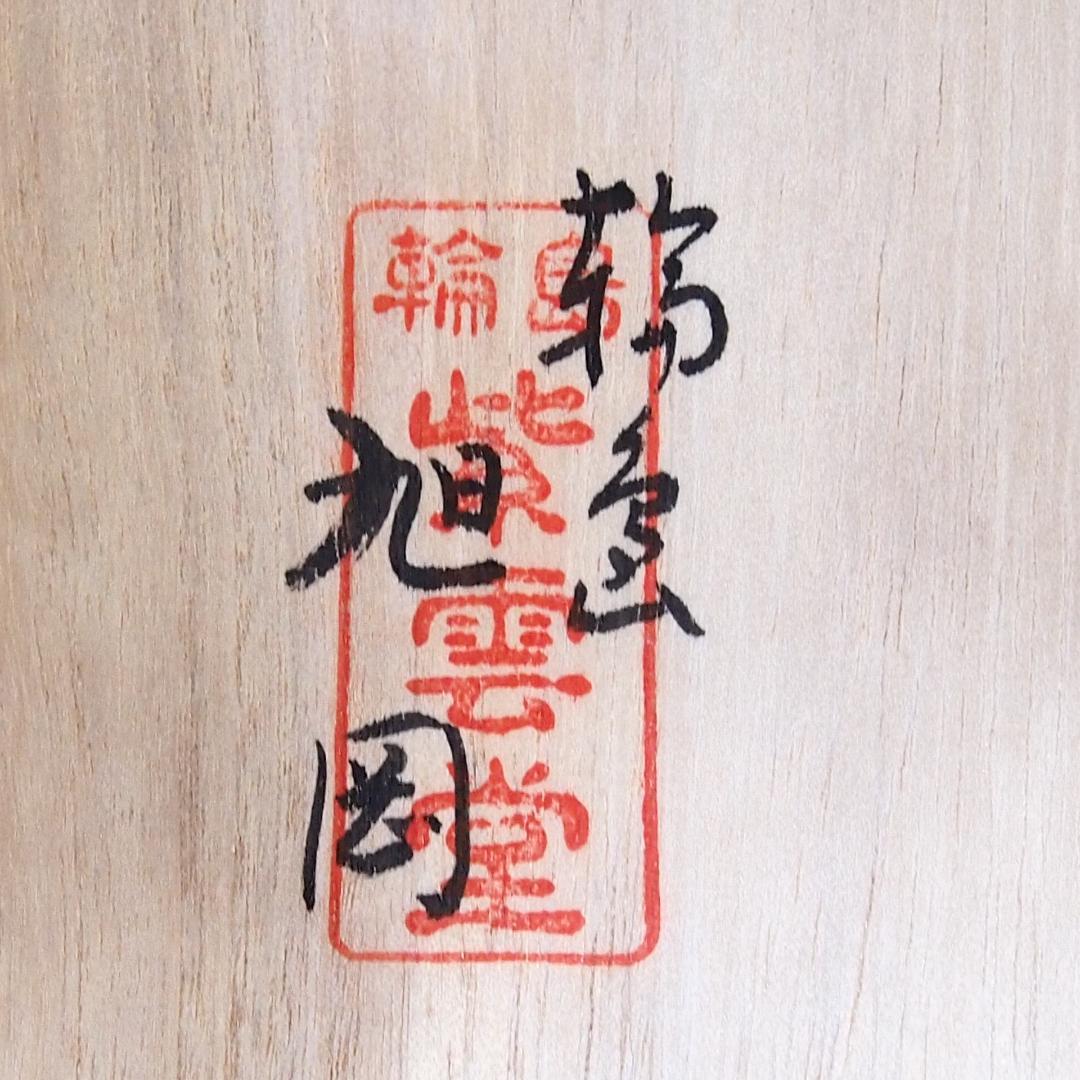 輪島
旭岡
輪島
紫雲堂